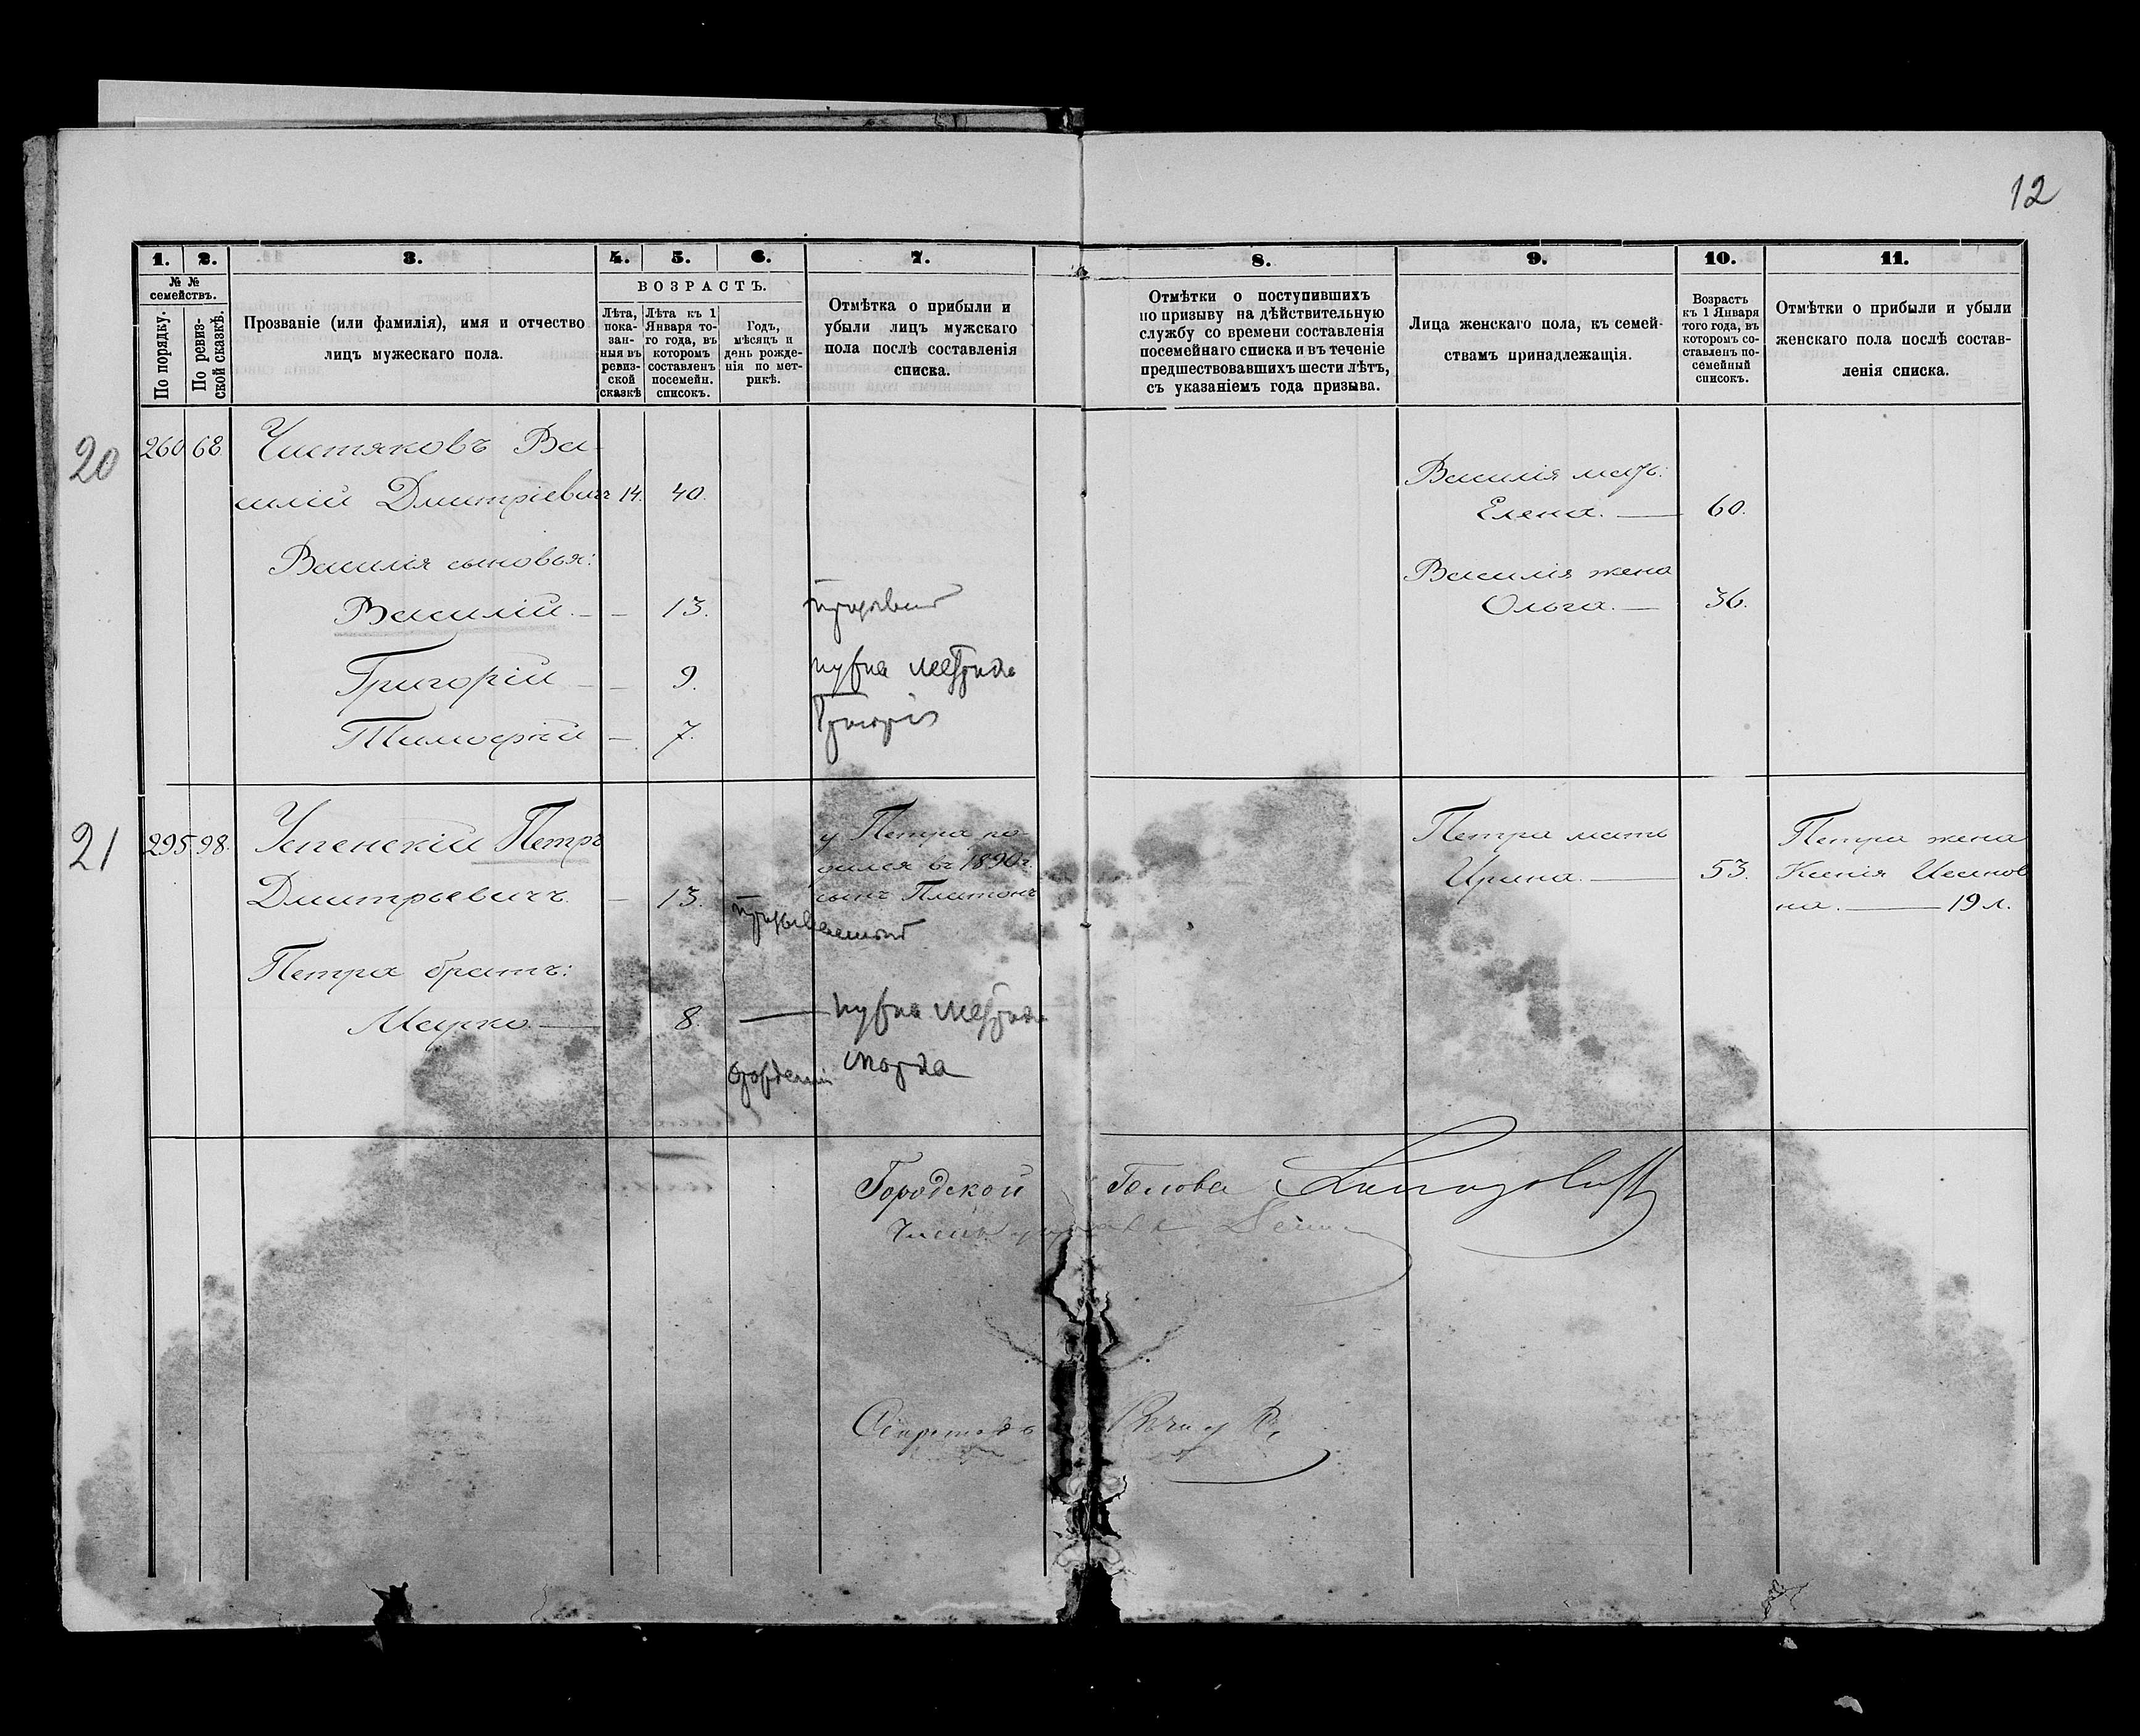 12
1. 2. 3. 4. 5. 6. 7. 8. 9. 10. 11.
№ № семействъ.
По порядку.
По ревиз-
ской сказкѣ.
Прозваніе (или фамилія), имя и отчество
лицъ мужескаго пола.
ВОЗРАСТЪ.
Лѣта,
пока-
зан-
ныя въ
ревиз-
ской
сказкѣ
Лѣта къ 1
Января то-
го года, въ
которомъ
составленъ
посемейн.
списокъ.
Годъ,
мѣсяцъ и
день рожде-
нія по мет-
рикѣ.
Отмѣтка о прибыли и
убыли лицъ мужскаго
пола послѣ составленія
списка.
Отмѣтки о поступившихъ
по призыву на дѣйствительную
службу со времени составленія
посемейнаго списка и въ теченіе
предшествовавшихъ шести лѣтъ,
съ указаніемъ года призыва.
Лица женскаго пола, къ семей-
ствамъ принадлежащія.
Возрастъ
къ 1 Января
того года, въ
которомъ со-
ставленъ по-
семейный
списокъ.
Отмѣтки о прибыли и убыли
женскаго пола послѣ состав-
ленія списка.
20 260 68 Чистяковъ Ва-
силій Дмитріевичъ 14. 40.
Василія сыновья:
Василій. — — 13.
Григорій — — 9. нужна метрика
Григорія
Тимофѣй — 7.
Василія мать:
Елена. — 60.
Василія жена
Ольга. — 36.
21 295 98. Успенскій Петръ
Дмитрьевичъ. — 13.
у Петра ро-
дился въ 1890 г.
сынъ Платонъ
призываемый
Петра братъ:
Марко. — 8. — нужна метрика
Марка
Петра мать
Ирина. — 53.
Петра жена
Ксенія
на. — 19 л.
Городской Голова
Членъ управы
Секретарь